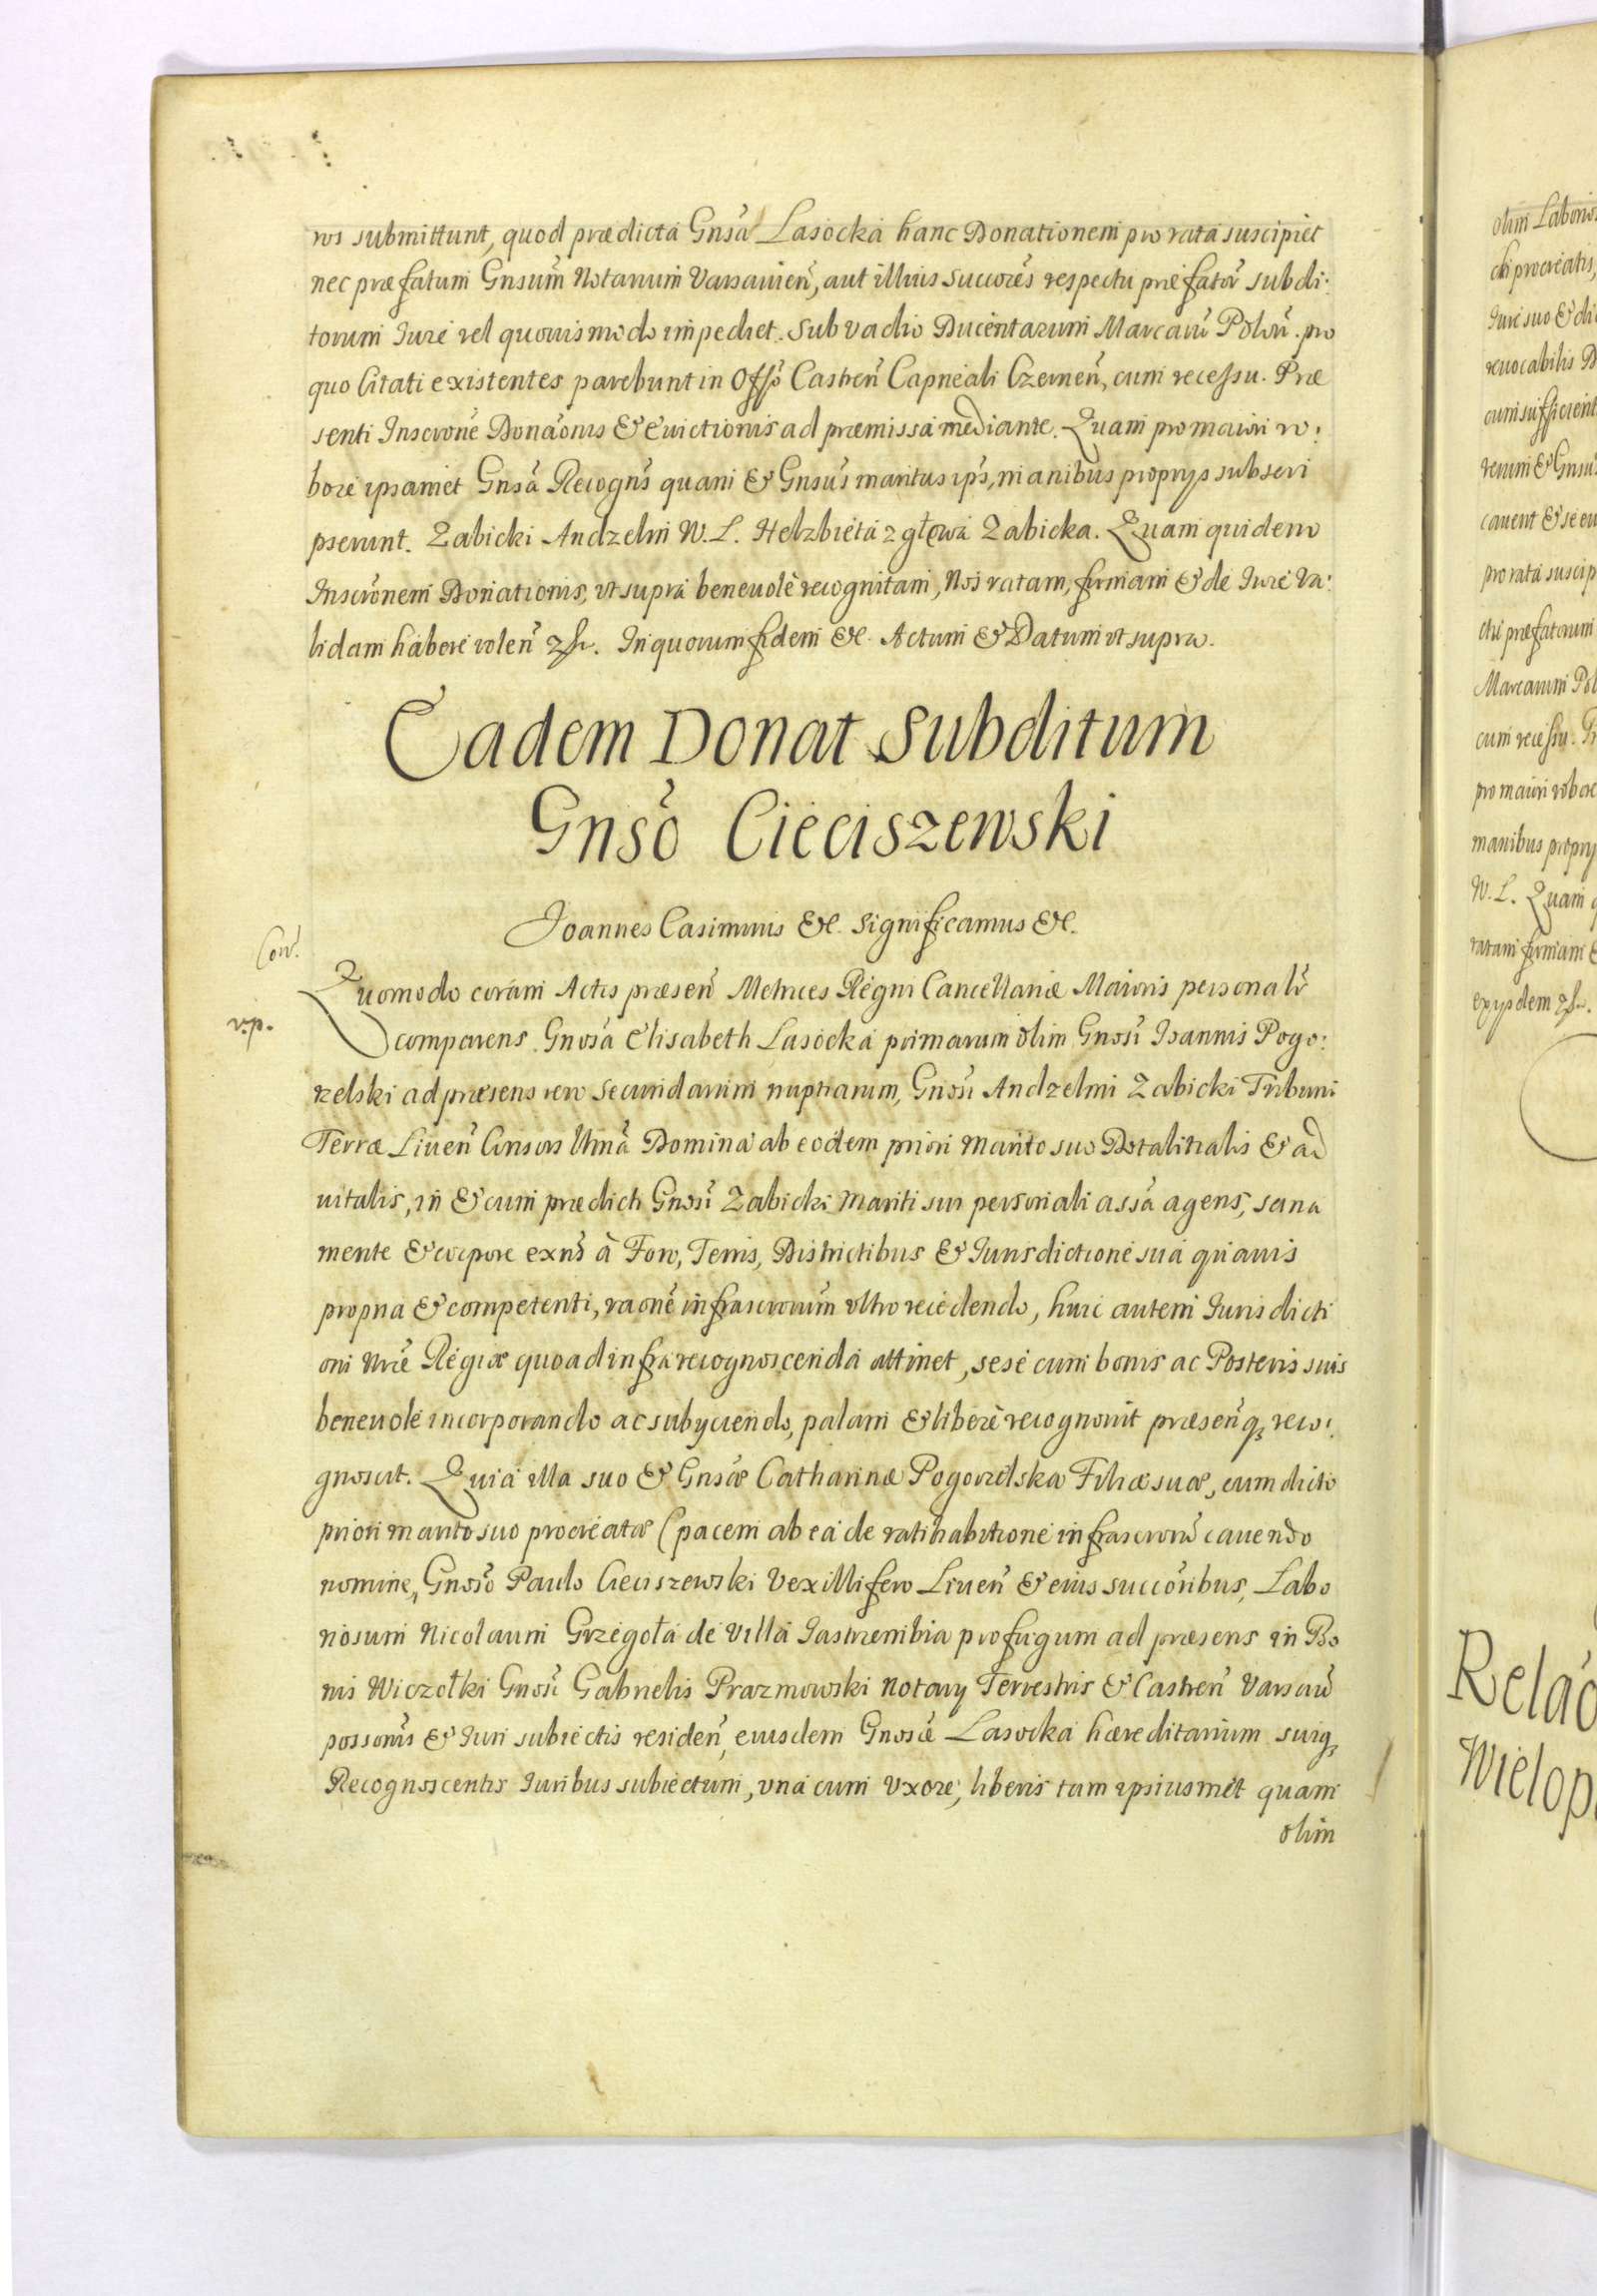 ros submittunt, quod prædicta Gnsã Lasocka hanc Donationem pro rata suscipiet
nec præfatum Gnsum̃ Notarium Varsavien̄, aut illius Succorẽs respectu præfator̃ subdi:
torum Iure vel quovismodo impediet. Sub vadio Ducentarum Marcarũ Polon̄. pro
quo Citati existentes parebunt in Offõ Castren̄ Capneali Czernen̄, cum recessu. Præ
senti Inscrone Donaõnis & Evictionis ad præmissa mediante. Quam pro maiori ro:
bore ipsamet Gnsã Recogns̃ quam & Gnsus̃ maritus ips̃, manibus proprys subscri
pserunt. Zabicki Andzelm W. L. Helzbieta z głową Zabicka. Quam quidem
Inscrõnem Donationis, ut supra benevolè recognitam, Nos ratam, firmam & de Iure va:
lidam habere volen̄ &c. In quorum fidem &c. Actum & Datum ut supra.
Eadem Donat Subditum
Gnsõ Cieciszewski
Joannes Casimirus &c. Significamus &c.
Con̄.
Quomodo coram Actis præsen̄ Metrices Regni Cancellariæ Maioris personalr̃
r.p.
comparens Gnosa Elisabeth Lasocka primarum olim Gnosi Ioannis Pogo:
rzelski ad præsens vero Secundarum nuptiarum, Gnosi Andzelmi Zabicki Tribuni
Terræ Liven̄ Consors Ulmã Domina ab eodem priori marito suo Dotalitialis & ad
vitalis, in & cum prædicti Gnosi Zabicki Mariti sui personali assã agens, sana
mente & corpore exns̃ à Foro, Terris, Districtibus & Iurisdictione sua quavis
propria & competenti, raonẽ infrascrorum̃ ultro recedendo, huic autem Iurisdicti
oni Nrẽ Regiæ quoad infra recognoscenda attinet, sese cum bonis ac Posteris suis
benevole incorporando ac subyciendo, palam & liberè recognovit præsen̄q; reco:
gnoscit. Quia illa suo & Gnsæ Catharinæ Pogorzelska Filiæ suæ, cum dicto
priori marito suo procreatæ (pacem ab ea de ratihabitione infrascrorũ cavendo
nomine, Gnosõ Paulo Cieciszewski Vexillifero Liven̄ & eius succõribus, Labo
riosum Nicolaum Grzegoła de Villa Jastrzembia profugum ad præsens in Bo
nis Wiczołki Gnosi Gabrielis Prazmowski Notary Terrestris & Castren̄ Varsaviẽ
possonis̃ & Iuri subiectis residen̄, eiusdem Gnosæ Lasocka hæreditarium suiq;
Recognoscentis Iuribus subiectum, una cum Uxore, liberis tam ipsiusmet quam
olim